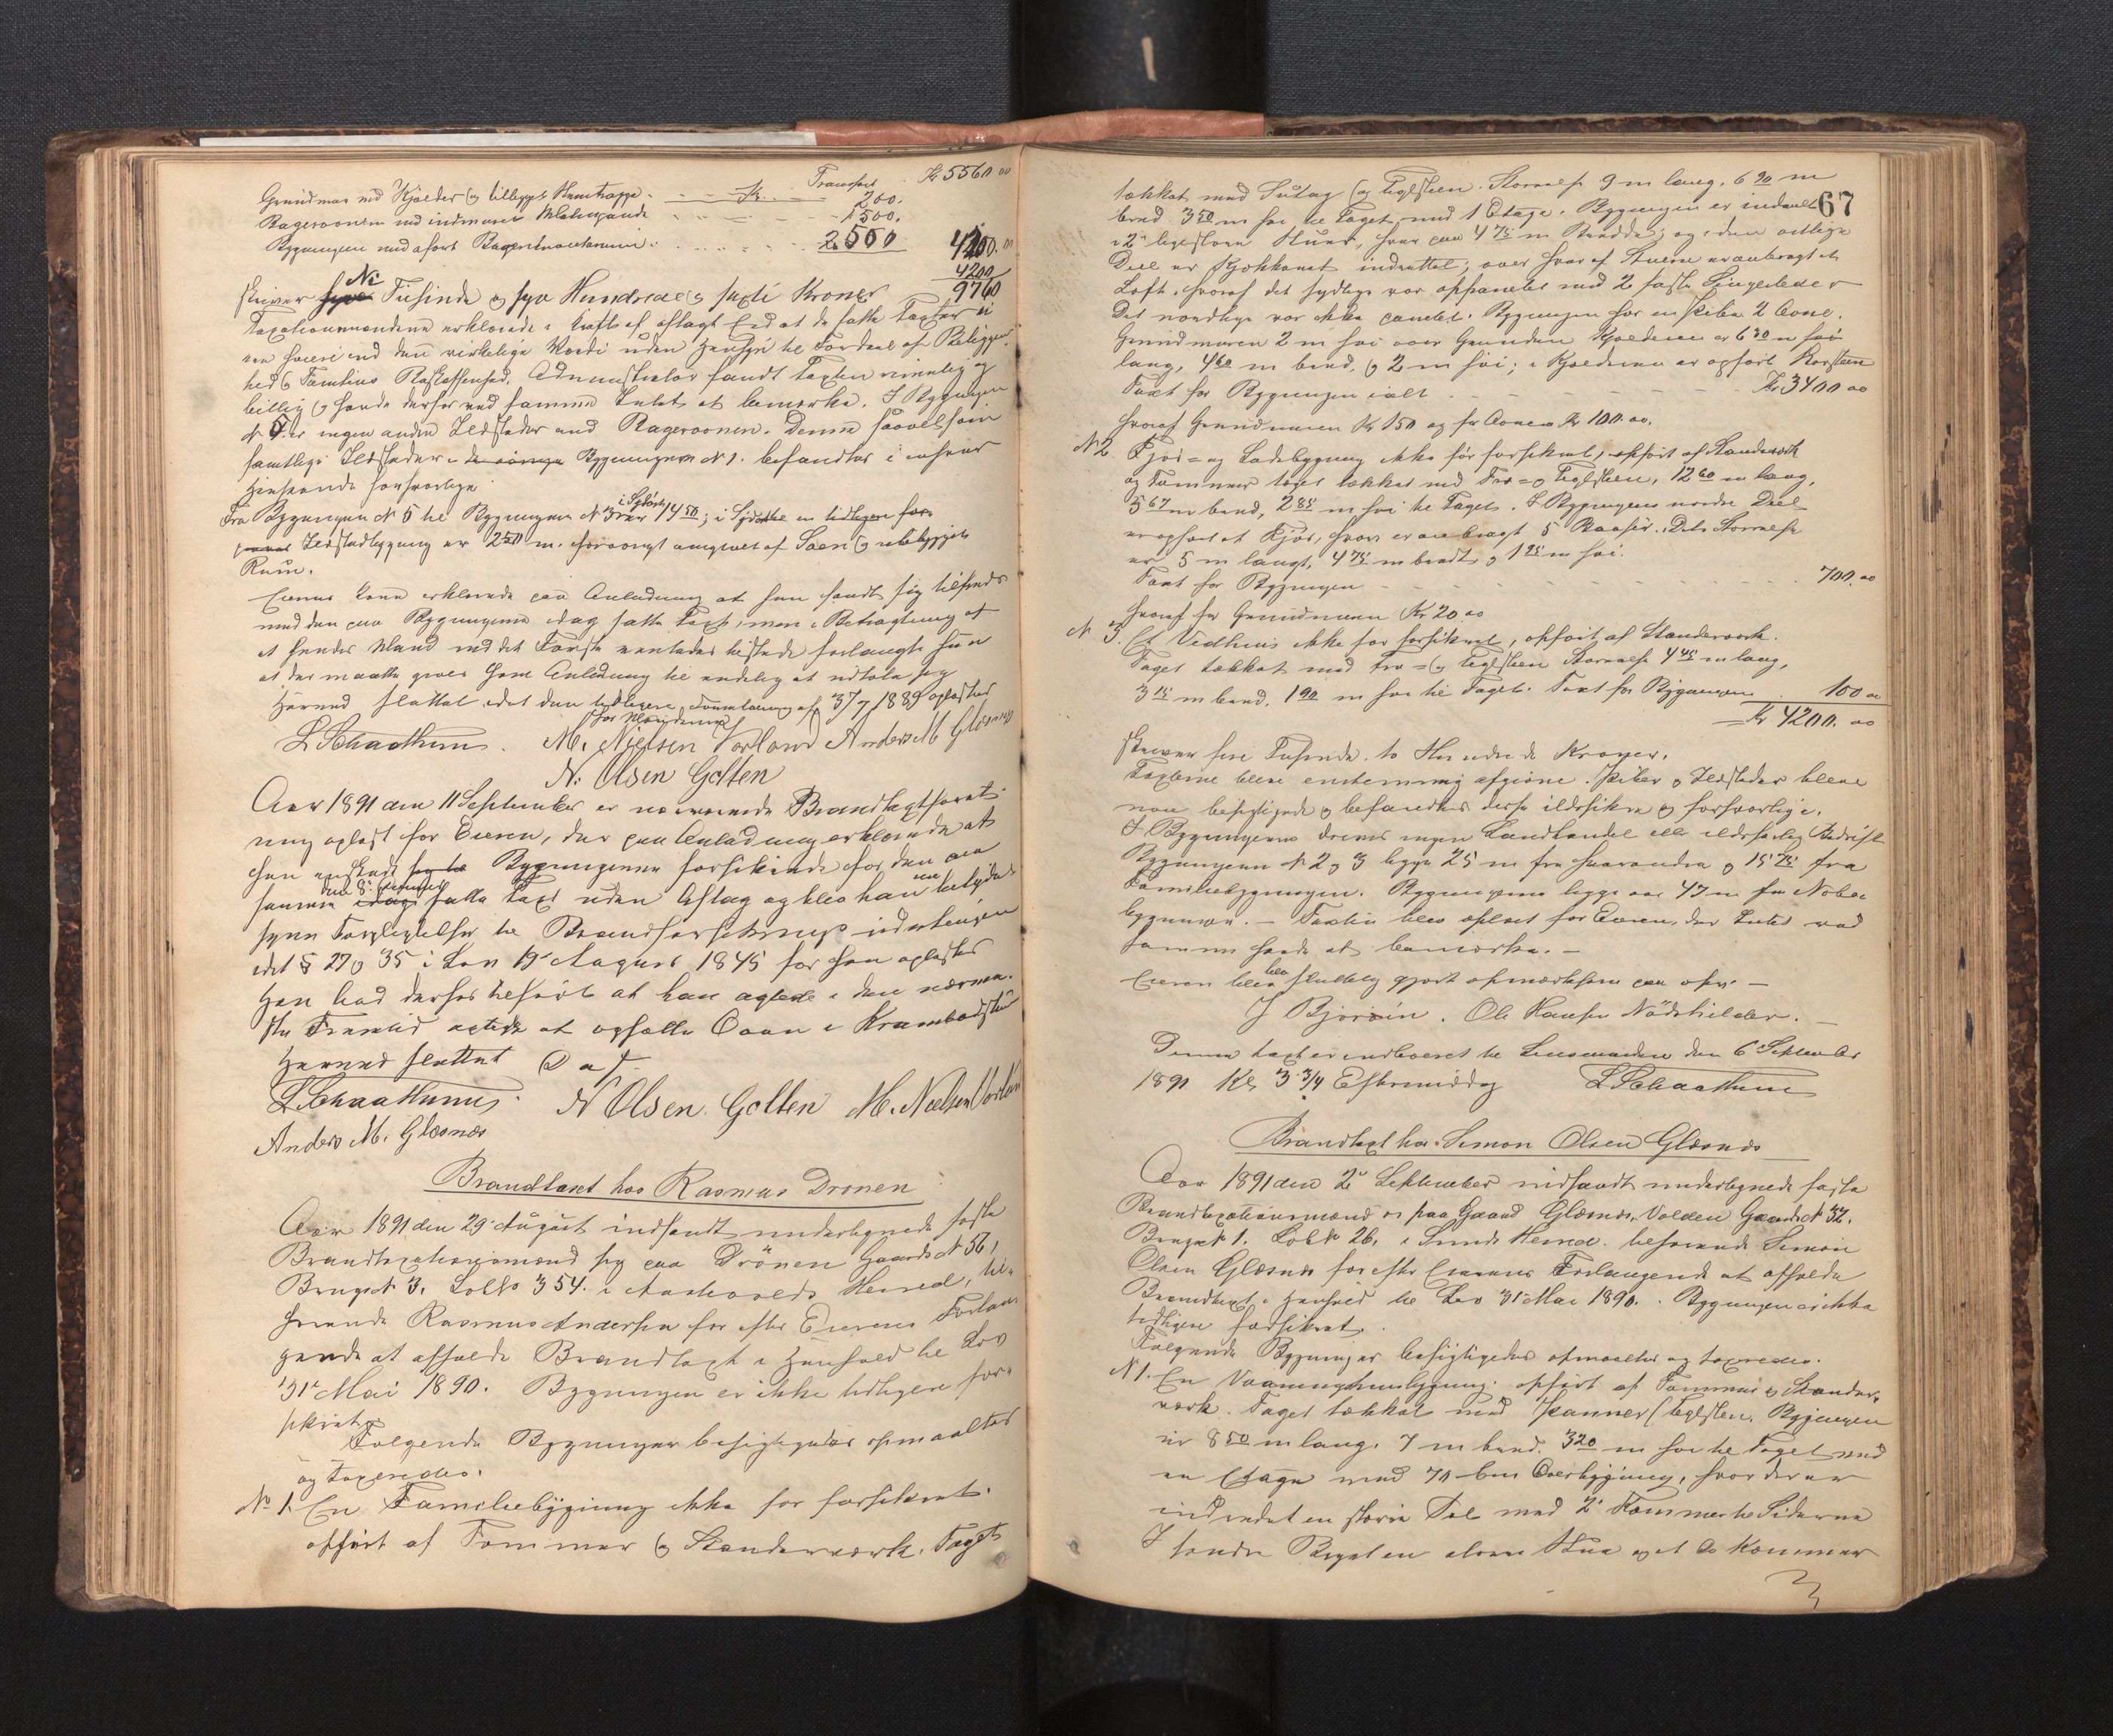 Transport Kr 5560 00
Grundmur med Kjælder og tillagt Stentrappe Kr. 200.
Bagerovnen med indmuret 1500.
Bygningen med 2500 4200.00
4200
9760
skriver Ni Tusinde og syv Hundrede og sexti Kroner
Taxationsmændene erklærede i Kraft af aflagt Eed at de satte Taxter ei
høiere end den virkelige Værdi uden Hensyn til Fordeel af Beliggen-
hed og Familiens Administrator fandt Taxten rimelig og
billig og havde derfor ved samme Intet at bemærke. I Bygningen
er ingen andre Ildsteder end Bagerovnen. Denne saavelsom
samtlige Ildsteder i Bygningen N 1. befandtes i enhver
Henseende forsvarlige
Fra Bygningen N 5 til Bygningen N 3 er 14 50; i
Ildstedbygning er 250 m. forøvrigt omgivet af Søen og ubebygget
Rum.
Eierens Kone erklærede paa Anledning at hun fandt sig tilfreds
med den paa Bygningerne idag satte Taxt; men i Betragtning af
at hendes Mand ved det Første ventedes tilstede forlangte hun
at der maatte gives ham Anledning til endelig at udtale sig
Herved sluttet idet den tidligere af 3/7 1889 oplæstes
L Schaathun. M. Nielsen Vorland Anders M Glesnæs
N. Olsen Golten
Aar 1891 den 11 September er nærværende Brandtaxtforret-
ning oplæst for Eieren, der paa Anledning erklærede at
han ønskede Bygningerne forsikrede for den paa
samme satte Taxt uden Afslag og blev han betydet
sine Forpligtelser til Brandforsikrings indretningen
idet § 27 og 35 i Lov 19 August 1845 for ham oplæstes
Han bad derhos tilført at han agtede i den nærme-
ste Fremtid agtede at opsætte Ovn i Krambodstuen
Herved sluttet D a f.
L Schaathun. N Olsen Golten M. Nielsen Vorland
Anders M. Glesnæs
Brandtaxt hos Rasmus Drønen
Aar 1891 den 29 August indfandt undertegnede faste
Brandtaxationsmænd sig paa Drönen Gaards N 56,
Brugs N 3. Løb No 354. i Austevolds Herred, til-
hørende Rasmus Andersen for efter Eierens Forlan-
gende at afholde Brandtaxt i Henhold til Lov
31te Mai 1890. Bygningen er ikke tidligere for-
sikret.
Følgende Bygninger besigtigedes opmaaltes
og taxeredes.
No 1. En Familiebygning ikke før forsikret.
opført af Tømmer og Stenderværk. Taget
67
tækket med Sutag og Teglsten. Størrelse 9 m lang. 6 90 m
bred 3 50 m høi til Taget, med 1 Etage. Bygningen er inddeelt
i 2 ligestore Stuer, hver paa 4 75 m Bredde; og i den østlige
Deel er Kjøkkenet indrettet; over hver af Stuerne er anbragt et
Loft, hvoraf det sydlige var oppanelet med 2 faste Sengesteder
Det nordlige var ikke panelet. Bygningen har en Pibe 2 Ovne.
Grundmuren 2 m høi over Grunden Kjælderen er 6 30 m
lang, 4 60 m bred, og 2 m høi; i Kjælderen er opført Korsteen
Taxt for Bygningen ialt Kr 3400 00
hvoraf Grundmuren Kr 150 og for Ovnen Kr 100.00.
N 2 Fjøs- og Ladebygning ikke før forsikret, opført af Stenderværk
og Tømmer taget tækket med Træ- og Teglsten, 12 60 m lang,
5 67 m bred, 2 85 m høi til Taget. I Bygningens nordre Deel
er opført et Fjøs, hvori er anbragt 5 Baaser. Dets Størrelse
er 5 m langt, 4 75 m bredt og 1 95 m høi.
Taxt for Bygningen 700.00
hvoraf for Grundmuren Kr 20 00
N 3. Et Vedhuus ikke før forsikret, opført af Stenderværk.
Taget tækket med Træ- og Teglsten Størrelse 4 45 m lang,
3 15 m bred. 1 90 m høi til Taget. Taxt for Bygningen 100 00
Kr 4200.00
skriver fire Tusinde to Hundrede Kroner.
Taxterne bleve enstemmig afgivne. Piber og Ildsteder bleve
nøie besigtigede og befandtes derfor ildsikre og forsvarlige.
I Bygningerne drives ingen Landhandel eller ildsfarlig Bedrift
Bygningerne N 2 og 3 ligge 25 m fra hverandre og 15 75 fra
Familiebygningen. Bygningerne ligge ca. 47 m fra Nabo-
bygninger. — Taxten blev oplæst for Eieren, der Intet ved
samme havde at bemærke. —
Eieren blev sluttelig gjort opmærksom paa
J Bjorøin. Ole Hansen Nödskilder. —
Denne taxt er indleveret til Lensmanden den 6 September
1891 Kl 3 3/4 Eftermiddag L Schaathun
Brandtaxt hos Simon Olsen Glesnæs
Aar 1891 den 2 September indfandt undertegnede faste
Brandtaxationsmænd os paa Gaard Glesnæs, Volden Gaards N 32.
Brugs N 1. Løb No 26. i Sunds Herred. tilhørende Simon
Olsen Glesnæs for efter Eierens Forlangende at afholde
Brandtaxt i Henhold til Lov 31 Mai 1890. Bygningen er ikke
tidligere forsikret.
Følgende Bygninger besigtigedes opmaaltes og taxeredes.
N 1. En Vaaningshusbygning. opført af Tømmer og Stender-
værk. Taget tækket med Panner og Teglsten. Bygningen
er 8 50 m lang, 7 m bred. 3 20 m høi til Taget med
en Etage med 70 cm Overbygning, hvor der er
indredet en større Sal med 2 Kammer til Siderne
I søndre